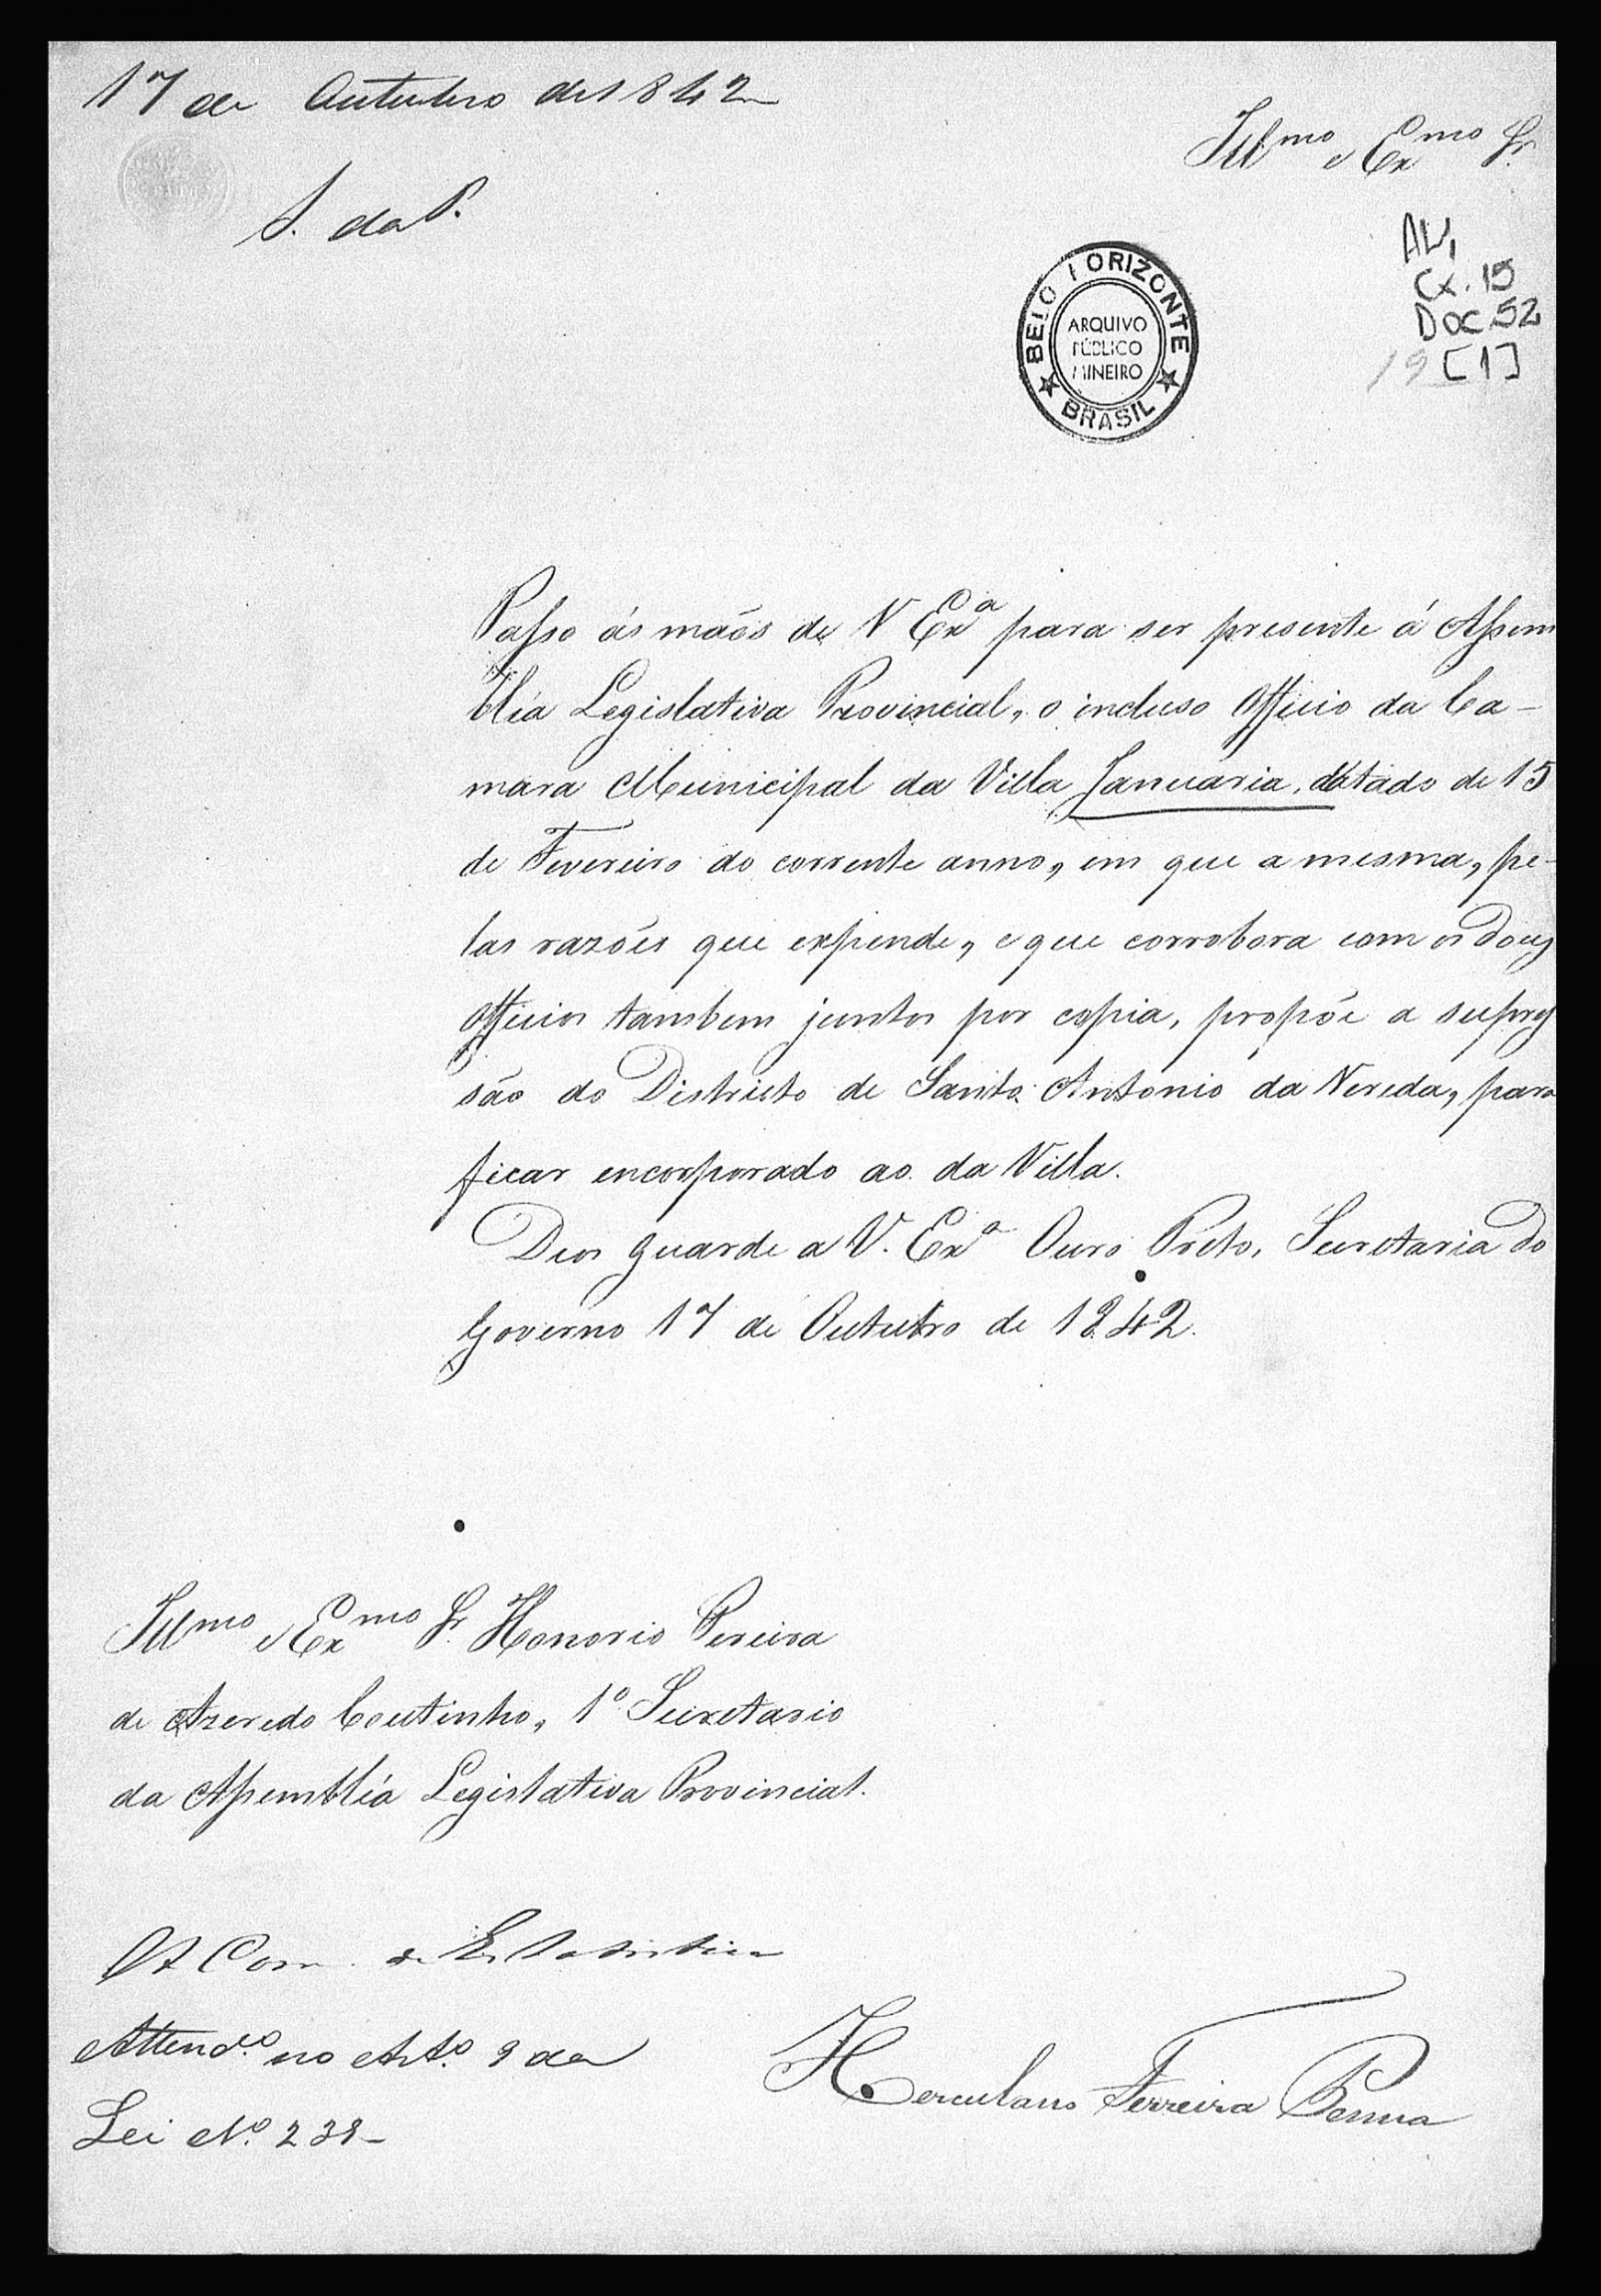 17 de Outubro de 1842
Illmo e Exmo Sr.
S. da P.
AL1
Cx. 15
Doc 52
19 [1]
BELO HORIZONTE
ARQUIVO
PÚBLICO
MINEIRO
BRASIL
Passo ás mãos de V Exa para ser presente á Assem
bléa Legislativa Provincial, o incluso Officio da Ca-
mara Municipal da Villa Januaria, datado de 15
de Fevereiro do corrente anno, em que a mesma, pe-
las razões que expende, e que corrobora com os dous
Officios tambem juntos por copia, propõe a supres
são do Districto de Santo Antonio da Vereda, para
ficar encorporado ao da Villa.
Deos Guarde a V. Exa Ouro Preto, Secretaria do
Governo 17 de Outubro de 1842.
Illmo e Exmo Sr. Honorio Pereira
de Azeredo Coutinho, 1º Secretario
da Assembléa Legislativa Provincial.
A Com. de Estatistica
Attendo. no Arto. 9 da
Lei No. 239-
Herculano Ferreira Penna